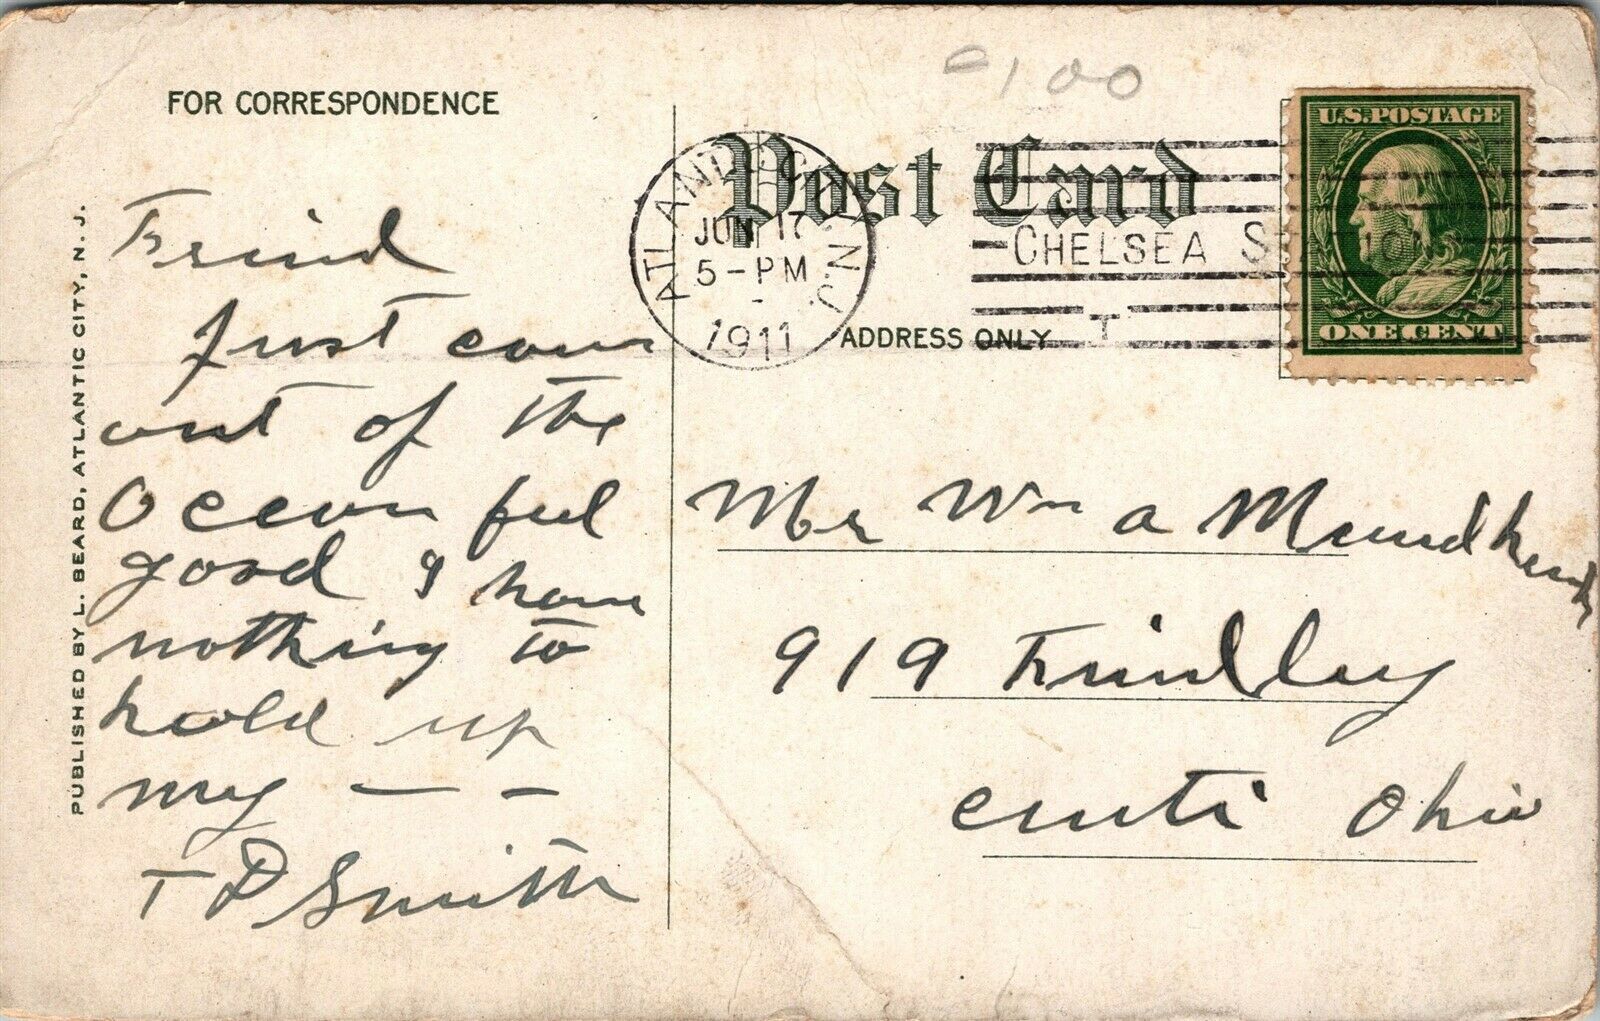 100
FOR CORRESPONDENCE
Post Card
U.S. POSTAGE
ONE CENT
ATLANTIC CITY, N.J.
JUN 17
5-PM
1911
CHELSEA STATION
T
ADDRESS ONLY
PUBLISHED BY L. BEARD, ATLANTIC CITY, N. J.
Frind
Just com
out of the
Ocean feel
good I have
nothing to
hold up
my — —
T D Smith
Mr Wm a
919 Findlay
Cinti Ohio